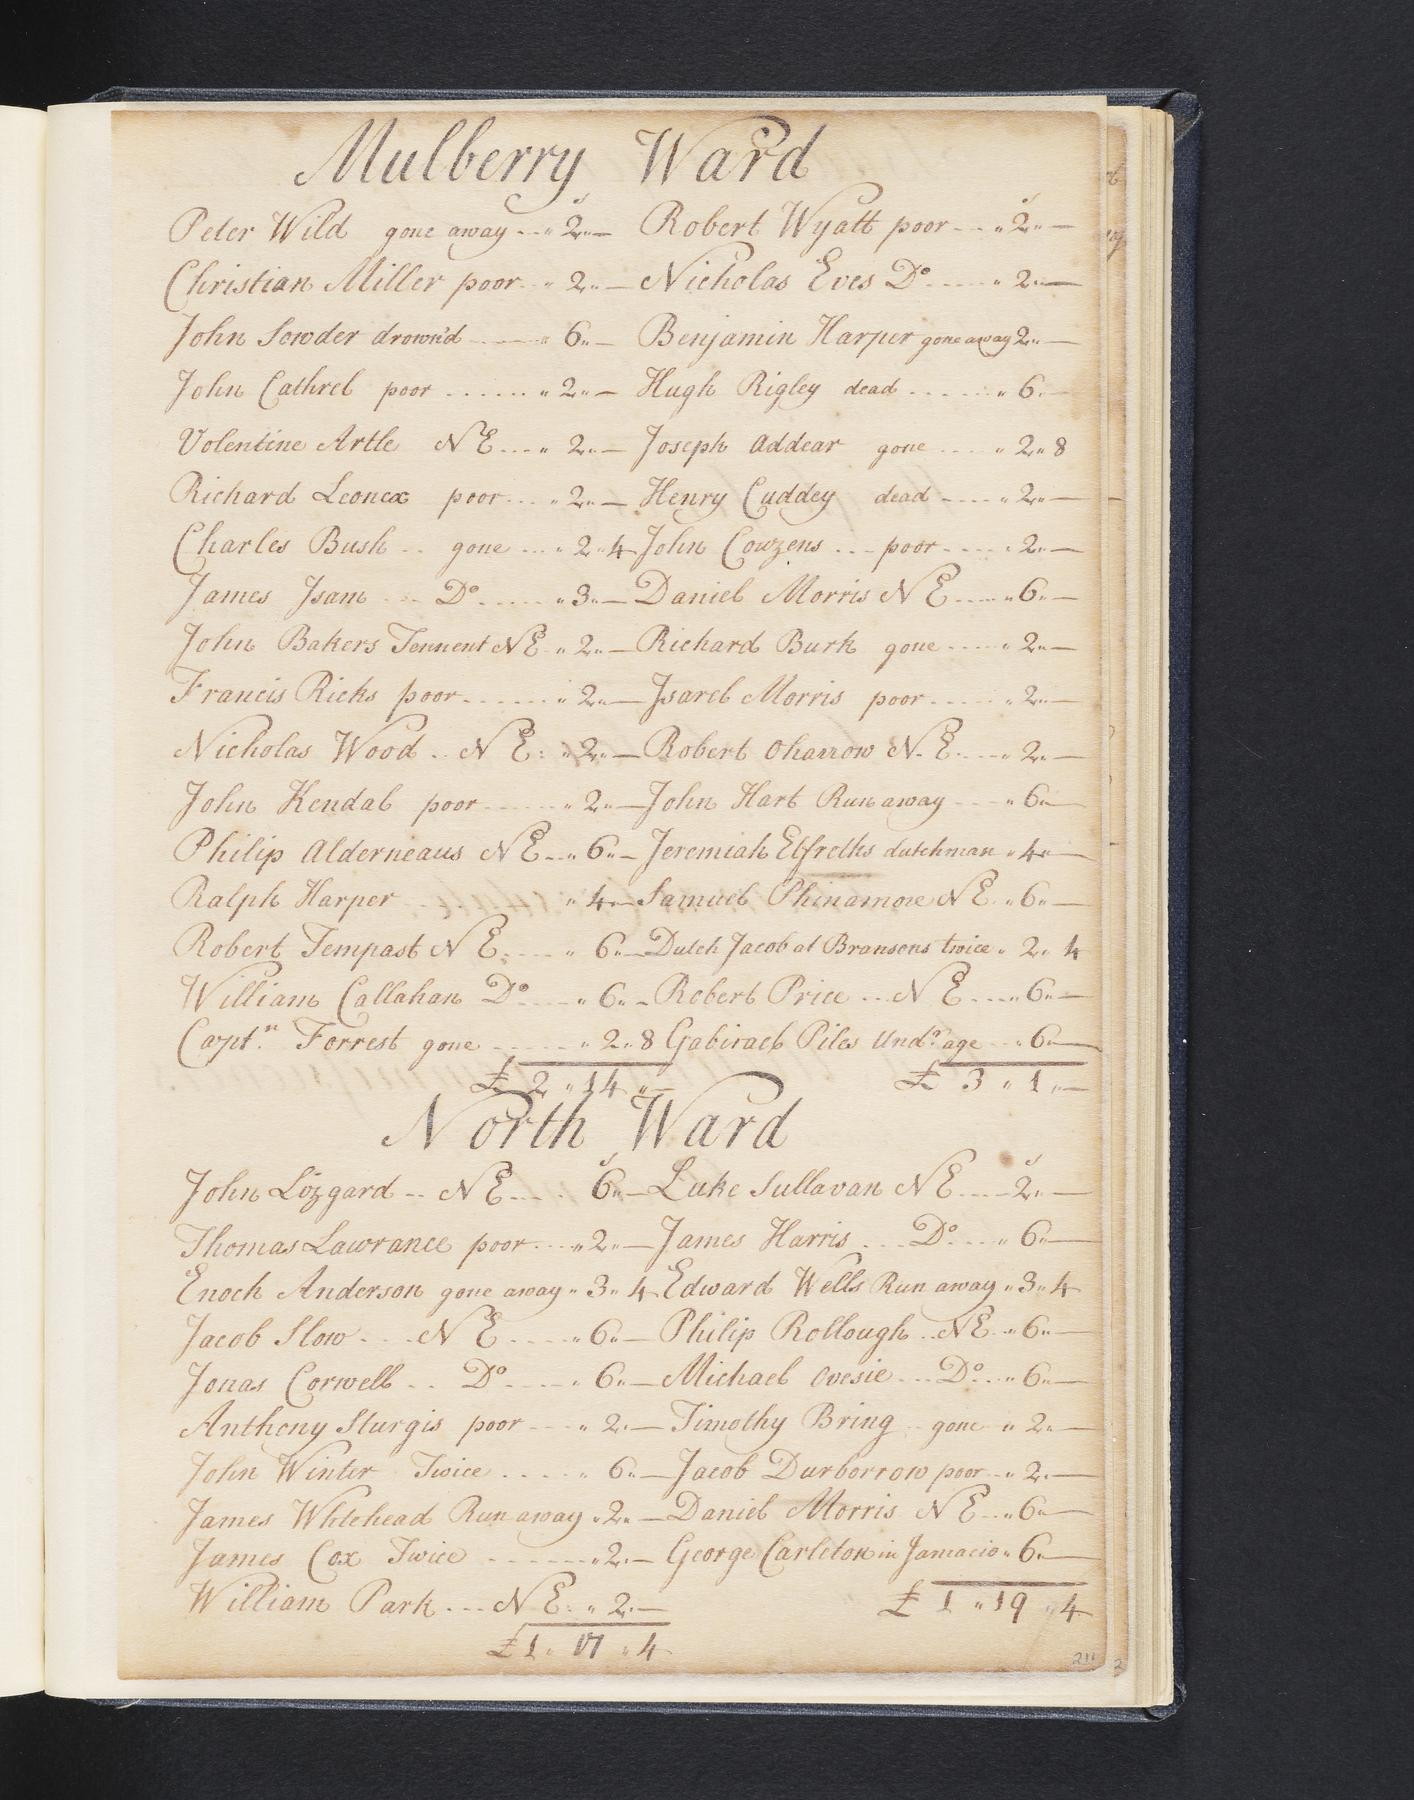 Mulberry Ward
s s
Peter Wild gone away --- " 2 " — Robert Wyatt poor --- " 2 " —
Christian Miller poor -- " 2 " — Nicholas Eves Do ---- " 2 " —
John Sowder drown'd ---- " 6 " — Benjamin Harper gone away 2 " —
John Cathrel poor ...... " 2 " — Hugh Rigley dead ...... " 6 " —
Volentine Artle NE --- " 2 " — Joseph Addear gone ---- " 2 " 8
Richard Leonex poor --- " 2 " — Henry Cuddey dead ---- " 2 " —
Charles Bush -- gone --- " 2 " 4 John Cowzens --- poor ---- " 2 " —
James Isam --- Do ---- " 3 " — Daniel Morris NE ---- " 6 " —
John Bakers Tennent NE " 2 " — Richard Burk gone ---- " 2 " —
Francis Ricks poor ------ " 2 " — Isarel Morris poor ----- " 2 " —
Nicholas Wood -- NE : " 2 " — Robert Oharrow N. E. --- " 2 " —
John Kendal poor ----- " 2 " — John Hart Run away ---- " 6 " —
Philip Alderneaus NE --- " 6 " — Jeremiah Elfreths dutchman " 4 " —
Ralph Harper " 4 " — Samuel Phinamore NE -- " 6 " —
Robert Tempast NE ---- " 6 " — Dutch Jacob at Bransens twice " 2 " 4
William Callahan Do ---- " 6 " — Robert Price --- NE ---- " 6 " —
Captn. Forrest gone ----- " 2 " 8 Gabirael Piles Undr. age --- " 6 " —
£ 2 " 14 " — £ 3 " 1 " —
North Ward
s s
John Lozgard -- NE ---- 6 " — Luke Sullavan NE ---- 2 " —
Thomas Lawrance poor --- " 2 " — James Harris --- Do --- " 6 " —
Enoch Anderson gone away " 3 " 4 Edward Wells Run away " 3 " 4
Jacob Slow --- NE ---- " 6 " — Philip Rollough -- NE -- " 6 " —
Jonas Corwell -- Do ---- " 6 " — Michael Ovesie --- Do --- " 6 " —
Anthony Sturgis poor ---- " 2 " — Timothy Bring -- gone " 2 " —
John Winter Twice ..... " 6 " — Jacob Durborrow poor -- " 2 " —
James Whitehead Run away " 2 " — Daniel Morris NE --- " 6 " —
James Cox Twice ------ " 2 " — George Carleton in Jamacio " 6 " —
William Park --- NE : " 2 " — £ 1 " 19 " 4
£ 1 " 17 " 4
211